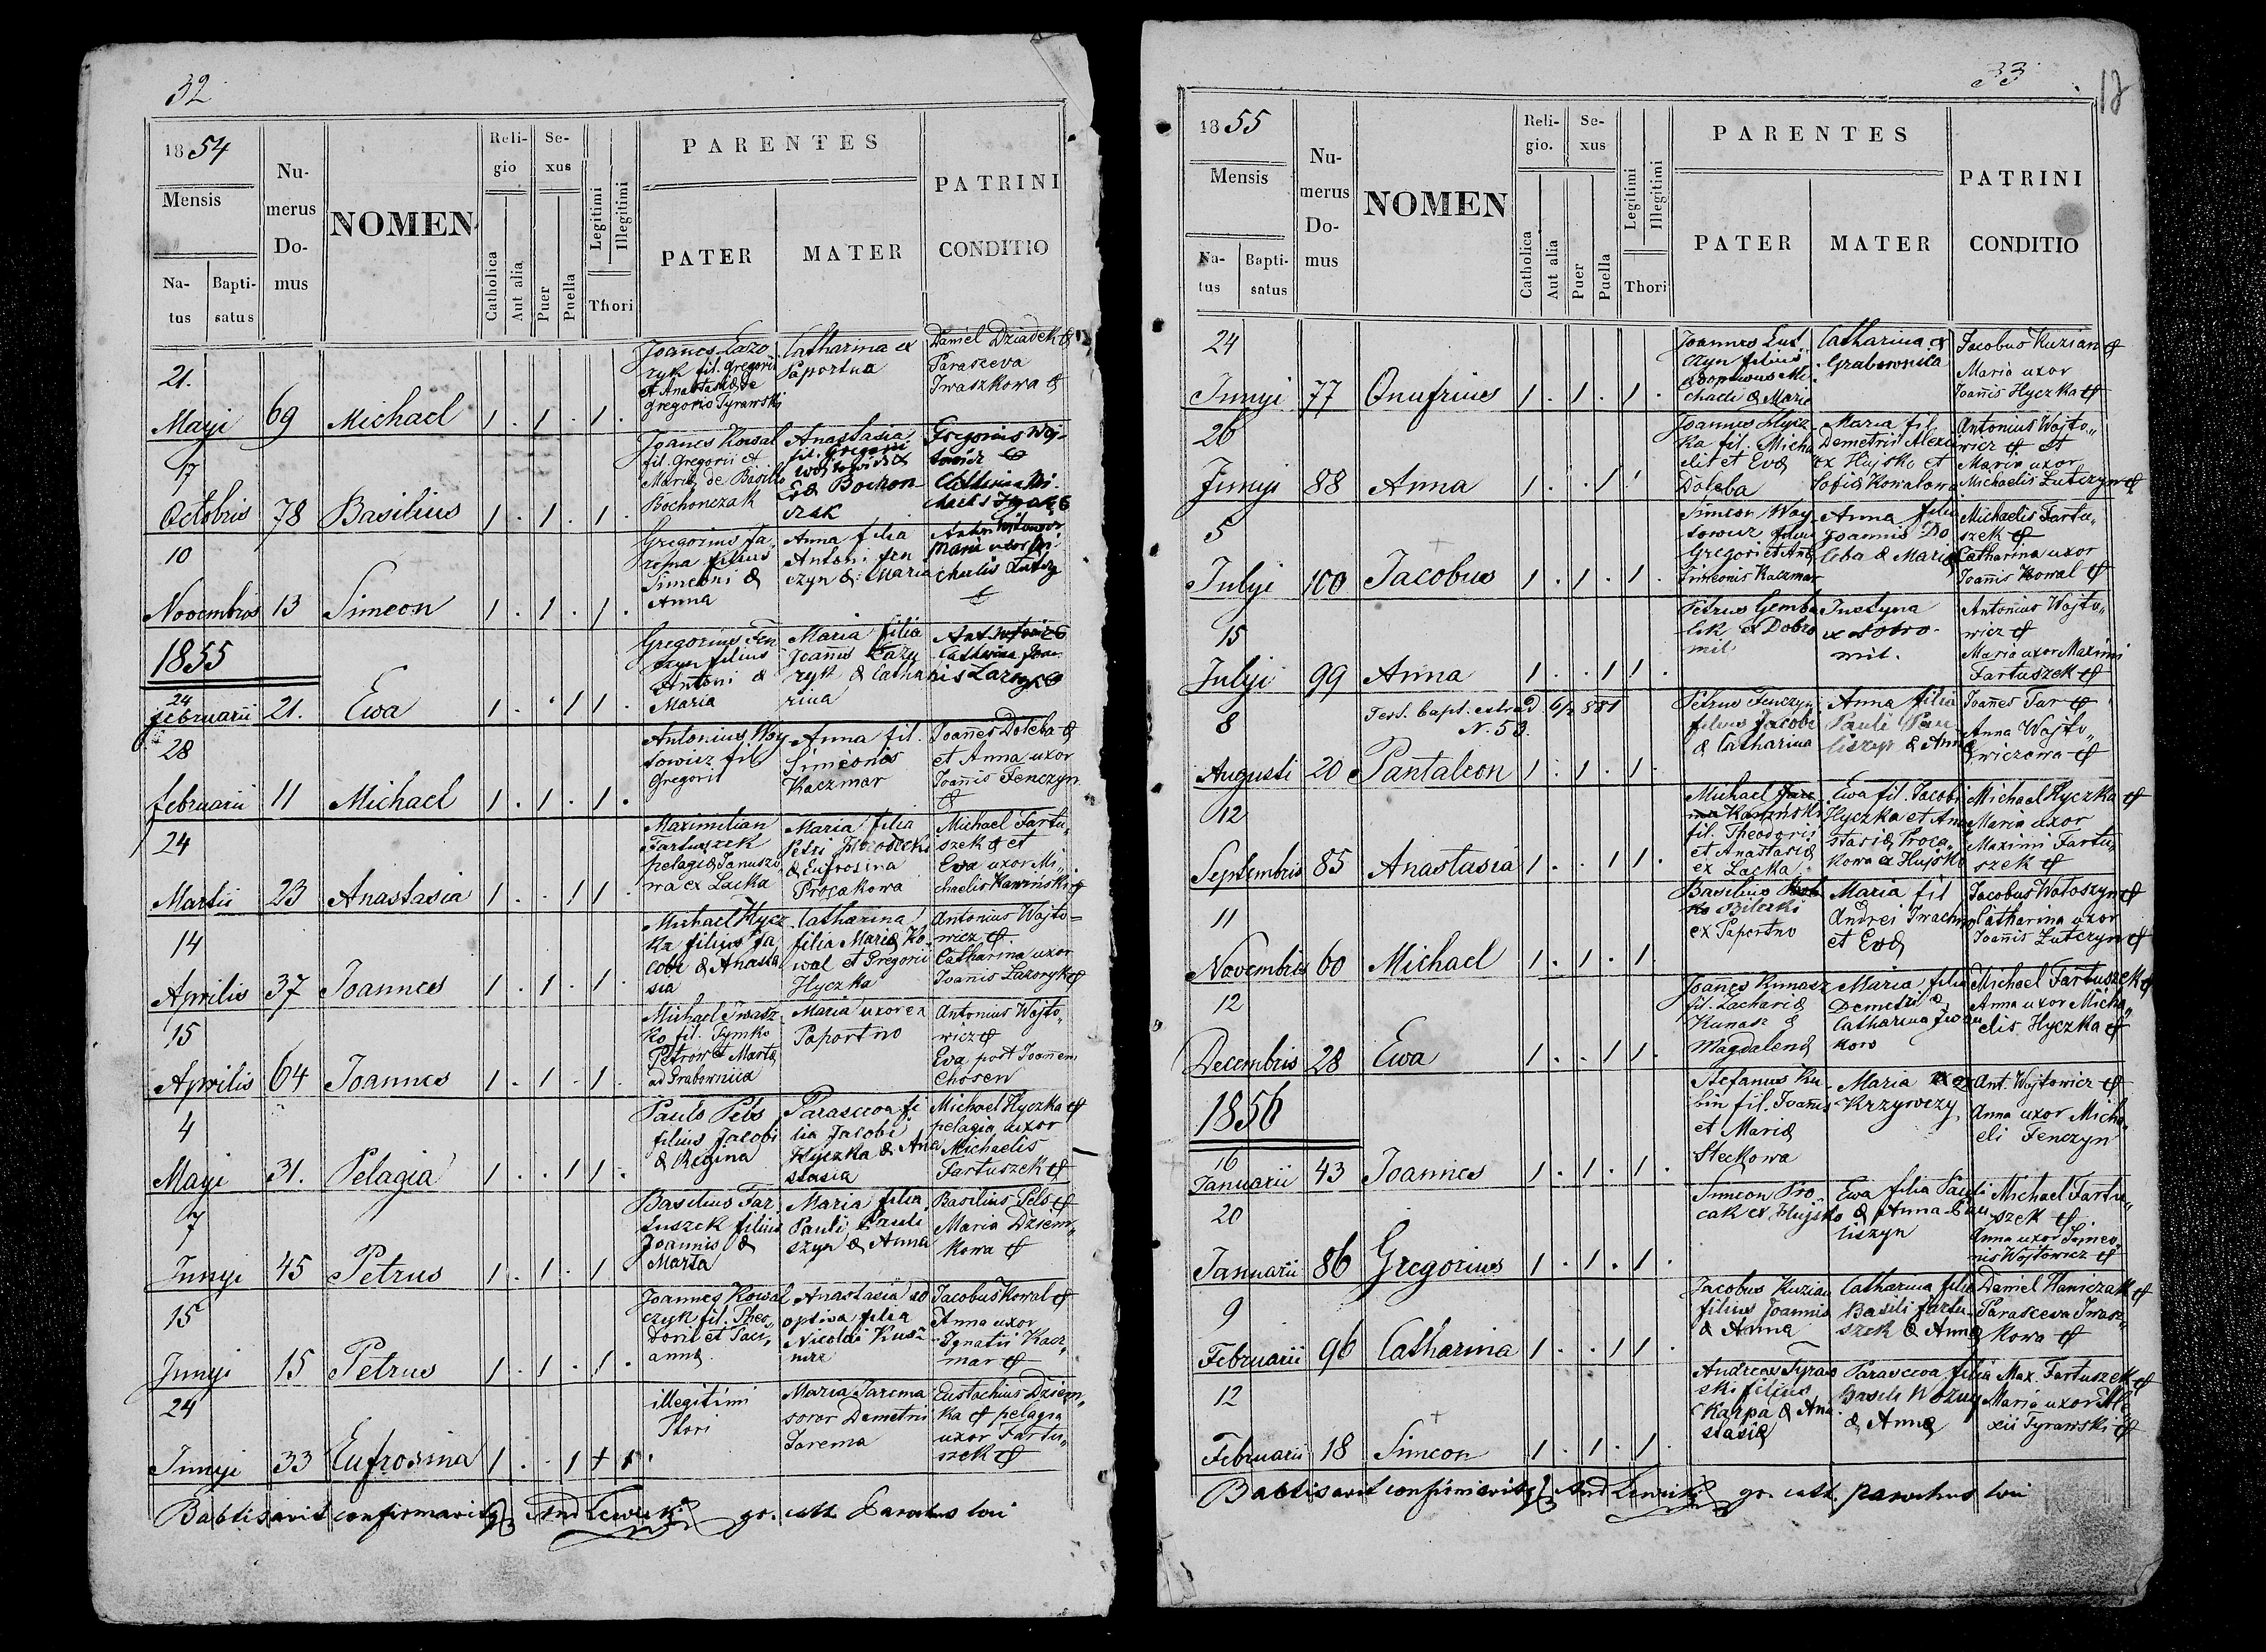 32
1854
Mensis
Na-
tus
Bapti-
satus
Nu-
merus
Do-
mus
NOMEN
Reli-
gio
Catholica
Aut alia
Se-
xus
Puer
Puella
Legitimi
Illegitimi
Thori
PARENTES
PATER
MATER
PATRINI
CONDITIO
21.
Mayi 69 Michael 1 . 1 . 1 .
Joanes Lazo
ryk fil. Gregorii
et Anastasiæ de
Gregorio Tyrawski
Catharina ex
Paportna
Daniel Dziadek &
Parasceva
Iwaszkowa &
17
Octobris 78 Basilius 1 . 1 . 1 .
Joanes Kowal
fil. Gregorii et
Mariæ de Basilio
Bochonczak
Anastasia
fil. Gregorii
Wojtowicz &
Eva Bochon
czak
Gregorius Woj-
towicz
10
Novembris 13 Simeon 1 . 1 . 1 .
Gregorius Ja
rema filius
Simeoni &
Anna
Anna filia
Antoni Fen
czyn & Maria
Maria uxor Mi
chaelis
1855
24
februarii 21. Ewa 1 . . 1 1 .
Gregorius Fen
czyn filius
Antoni &
Maria
Maria filia
Joannis Lazo
ryk & Catha
rina
28
februarii 11 Michael 1 . 1 . 1 .
Antonius Woy
towicz fil.
Gregorii
Anna fil.
Simeonis
Kaczmar
Joannes Doleba &
et Anna uxor
Joannis Fenczyn
24
Martii 23 Anastasia 1 . . 1 1
Maximilian
Fartuszek
pelagiæ Januszo
wa ex Lacka
Maria filia
Petri
& Eufrosina
Procakowa
Michael Fartu„
szek & et
Eva uxor Mi„
chaelis Kawiński &
14
Aprilis 37 Joannes 1 . 1 . 1 .
Michael Hycz
ka filius Ja
cobi & Anasta
sia
Catharina
filia Mariæ Ko
wal et Gregorii
Hyczka
Antonius Wojto=
wicz &.
Catharina uxor
Joannis Lazoryk &
15
Aprilis 64 Joannes 1 . 1 . 1 .
Michael Iwasz
ko fil. Tymko
Petrow & Marta
ad Grabownica
Maria uxor ex
Paportno
Antonius Wojto„
wicz &
Eva post Joannem
Chosen
4
Mayi 31. Pelagia 1 . . 1 1 .
Paulo Pels
filius Jacobi
& Regina
Parasceva fi
lia Jacobi
Hyczka & Ana
stasia
Michael Hyczka &
pelagia uxor
Michaelis
Fartuszek &
7
Junyi 45 Petrus 1 . 1 . 1
Basilius Far
tuszek filius
Joannis &
Marta
Maria filia
Pauli Pauli
szyn & Anna
Basilius Pels &
Maria Dziem„
kowa &
15
Junyi 15 Petrus 1 . 1 . 1 .
Joannes Kowal
czyk fil. Theo„
dori et Paci„
annæ
Anastasia ad
optiva filia
Nicolai
Jacobus Kowal &
Anna uxor
Ignatii Kacz„
mar &
24
Junyi 33 Eufrosina 1 . . 1
illegitimi
Thori
Maria Jarema
soror Demetrii
Jarema
Eustachius Dziem„
ka & pelagia
uxor Fartu„
szek &
Babtisavit confirmavitq And Lewicki gr. cath. Parochus loci
33
12
1855
Mensis
Na-
tus
Bapti-
satus
Nu-
merus
Do-
mus
NOMEN
Reli-
gio.
Catholica
Aut alia
Se-
xus
Puer
Puella
Legitimi
Illegitimi
Thori
PARENTES
PATER
MATER
PATRINI
CONDITIO
24
Junyi 77 Onufrius 1 . 1 . 1 .
Joannes Lut
czyn filius
adoptivus Mi
chaeli & Marie
Catharina &
Grabownica
Jacobus Kuzian &
Maria uxor
Joannis Hyczka &
26
Junyi 88 Anna 1 . . 1 1
Joannes Hycz
ka fil. Micha
elis et Evæ
Doleba
Maria fil
Demetrii Alexa
ex Hujsko et
Sofiæ Kowalowa
Antonius Wojto„
wicz & et
Maria uxor
Michaelis Lutczyn &
5
Julyi 100 Jacobus 1 . 1 . 1 .
Simeon Woy
towicz filius
Gregori et Annæ
Simeonis Kaczmar
Anna filia
Joannis Do
leba & Mariæ
Michaelis Fartu„
szek &
Catharina uxor
Joannis Kowal &
15
Julyi 99 Anna 1 . . 1 1 .
Petrus Gemba
lik ex Dobro
mil.
Justyna
ex Dobro-
mil.
Antonius Wojto„
wicz &
Maria uxor Maximi
Fartuszek &
Test. bapt. extrad.
N. 53.
8
Augusti 20 Pantaleon 1 . 1 . 1 .
Petrus Fenczyn
filius Jacobi
& Catharina
Anna filia
Pauli Pau
liszyn & Anna
Joannes Far &
Anna Wojto„
wiczowa &
12
Septembris 85 Anastasia 1 . . 1 1 .
Michael
Kawiński
fil. Theodoris
et Anastasiæ
ex Lacka
Ewa fil. Jacobi
Hyczka et Ana
stasiæ Proca„
kowa ex Hujsko
Michael Hyczka &
Maria uxor
Maximi Fartu„
szek &
11
Novembris 60 Michael 1 . 1 . 1 .
Basilius
Bilecki
ex Paportno
Maria fil
Andrei Iwachno
et Evæ
Jacobus Wołoszyn &
Catharina uxor
Joannis Lutczyn &
12
Decembris 28 Ewa 1 . . 1 1 .
Joanes Kunasz
fil. Zachariæ
Kunasz &
Magdalenæ
Maria filia
Demetri &
Catharina Iwan
kow
Michael Fartuszek &
Anna uxor Micha„
elis Hyczka &
1856
16
Januarii 43 Joannes 1 . 1 . 1 .
Stefanus Ku
bin fil. Joannis
et Mariæ
Steckowa
Maria ex
Krzywczy
Ant. Wojtowicz &
Anna uxor Micha„
eli Fenczyn
20
Januarii 86 Gregorius 1 . 1 . 1 .
Simeon Pro
cak ex Hujsko
Ewa filia Pauli
& Anna Pau
liszyn
Michael Fartu„
szek &.
Anna uxor Simeo„
nis Wojtowicz &
9
Februarii 96 Catharina 1 . . 1 1 .
Jacobus Kuzian
filius Joannis
& Anna
Catharina filia
Basili Fartu
szek & Annæ
Daniel Haniczak &
Parasceva Iwasz„
kowa &
12
Februarii 18 Simeon 1 . 1 . 1 .
Andreas Tyraw
ski filius
Karpa & Ana
stasiæ
Parasceva filia
Basili Wozny
& Annæ
Max. Fartuszek &
Maria uxor Ale
xii Tyrawski &
Babtisavit confirmavitq And Lewicki gr. cath. parochus loci